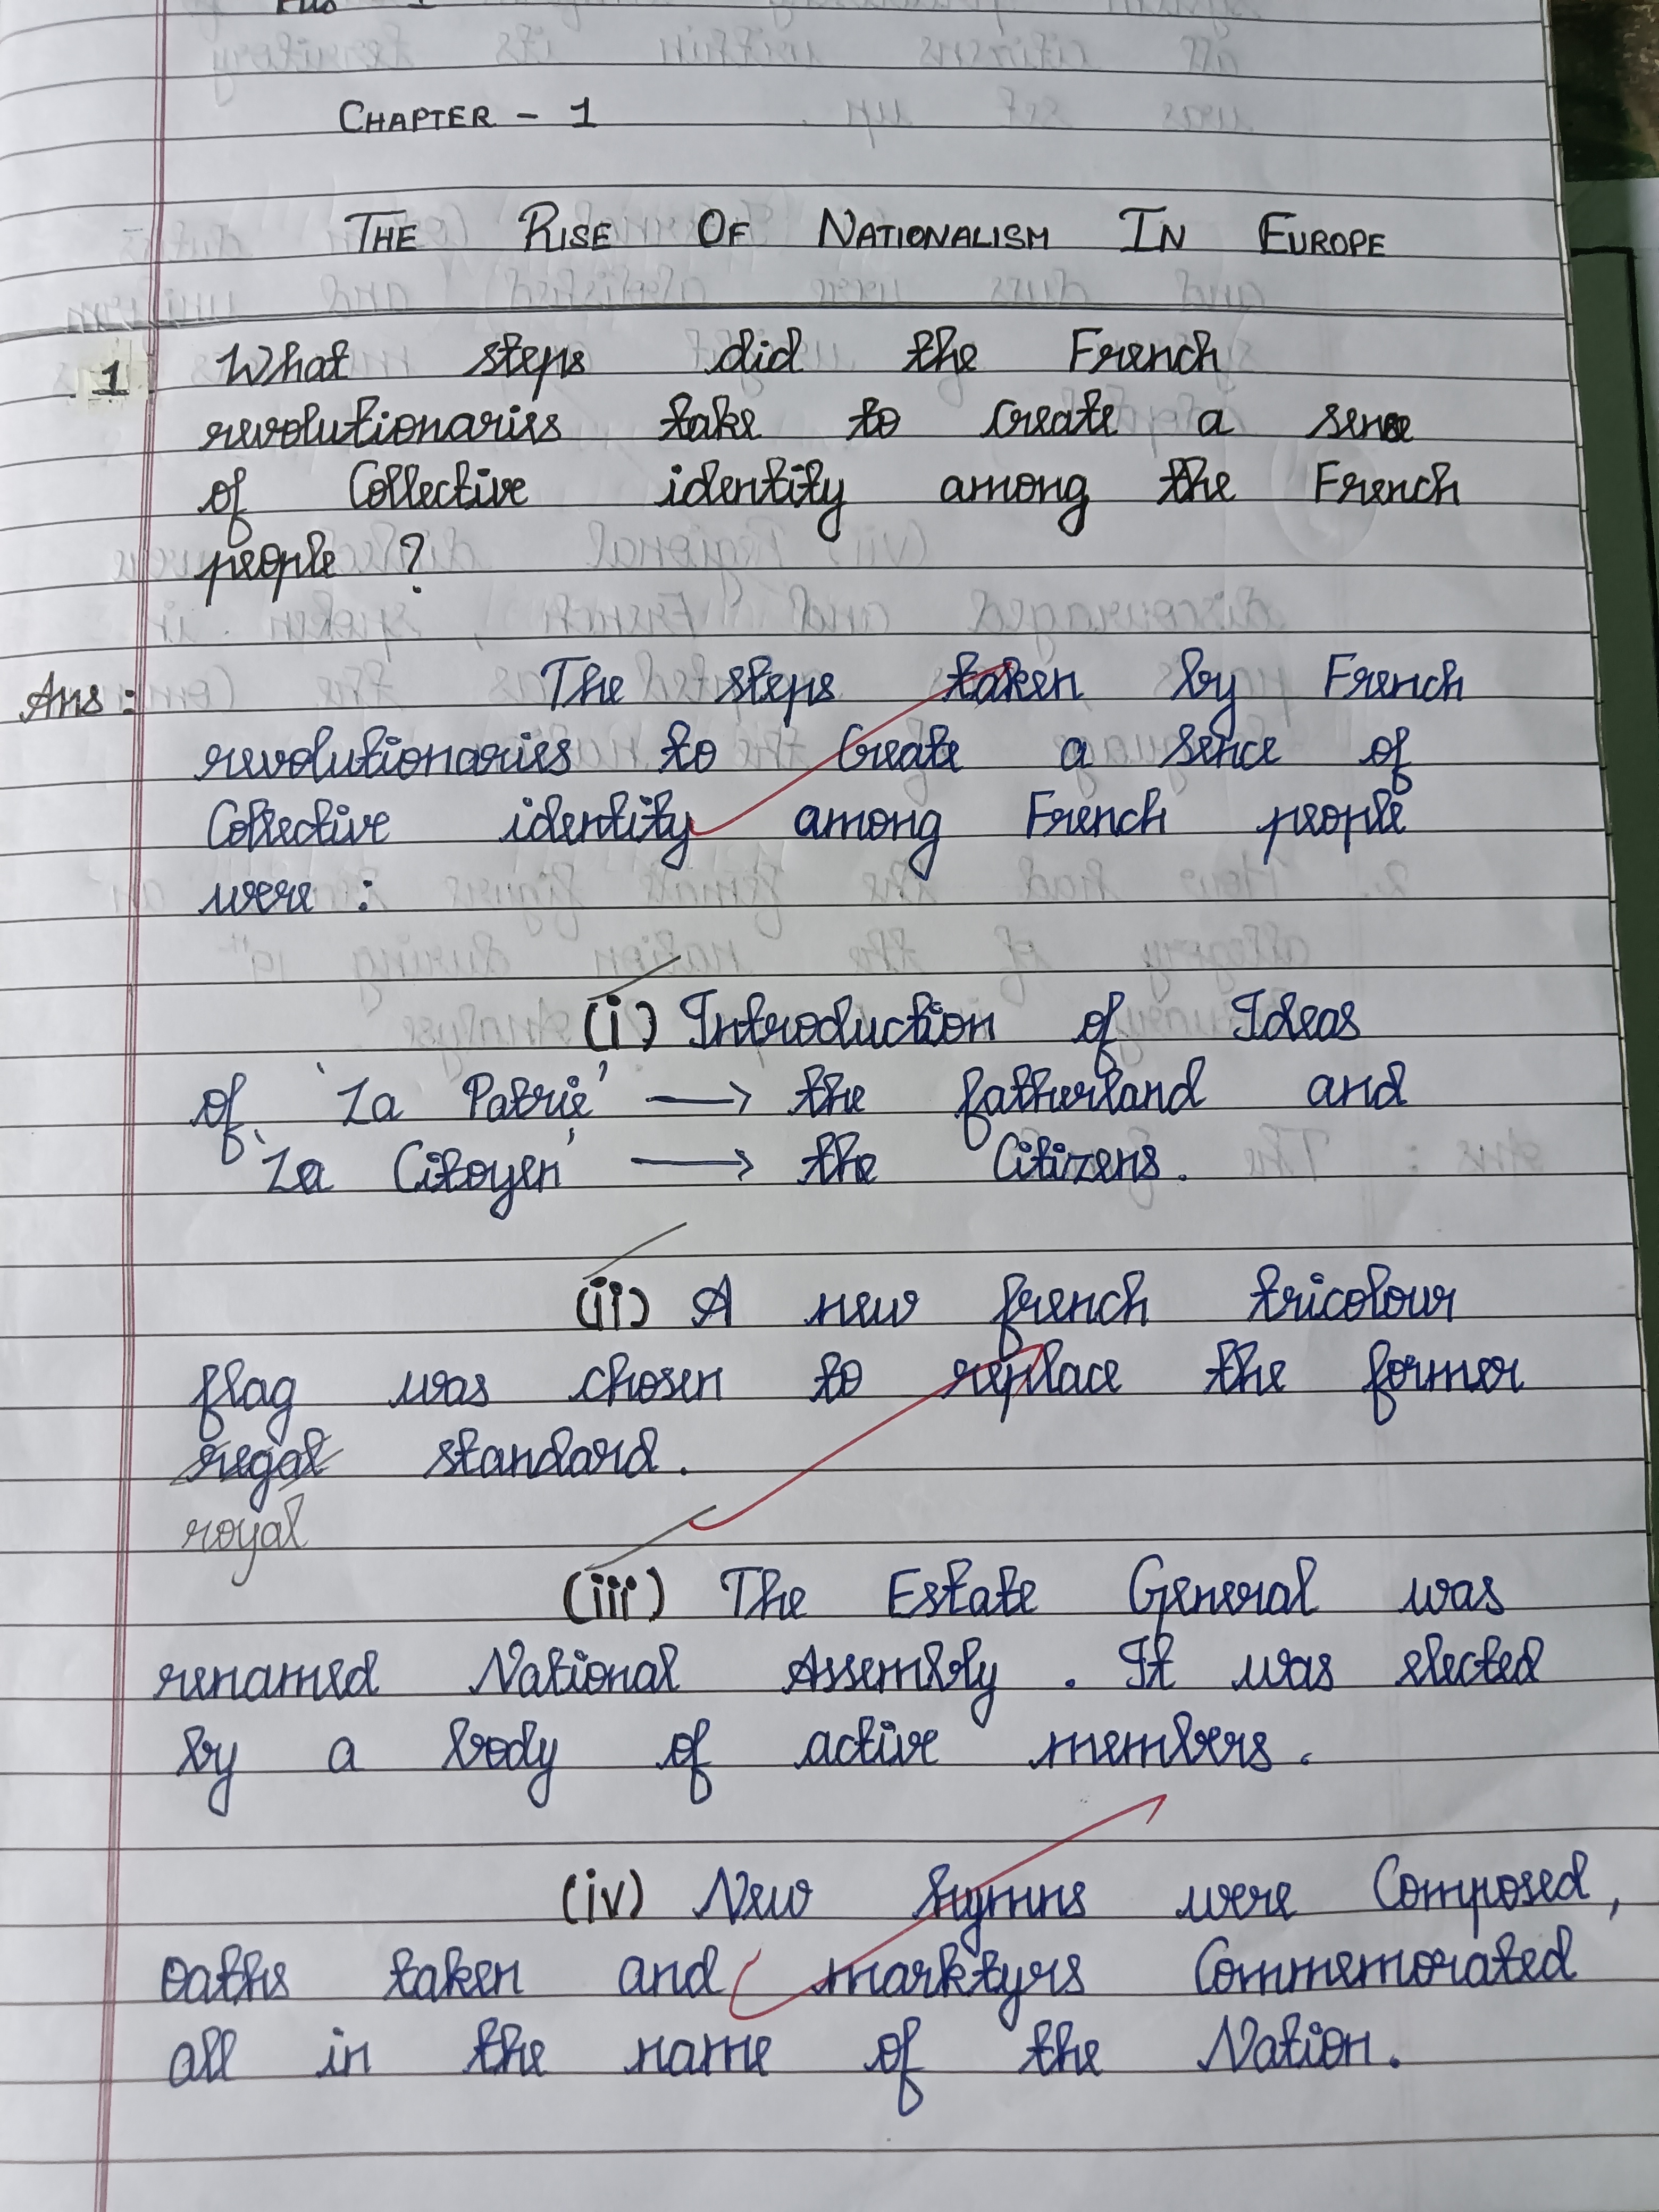 CHAPTER - 1
THE RISE OF NATIONALISM IN EUROPE
1 What steps did the French
revolutionaries take to create a sense
of Collective identity among the French
people ?
Ans : The steps taken by French
revolutionaries to Create a sence of
Collective identity among French people
were :
(i) Introduction of Ideas
of 'La Patrie' → the fatherland and
'La Citoyen' → the Citizens.
(ii) A new french tricolour
flag was chosen to replace the former
regal standard.
royal
(iii) The Estate General was
renamed National Assembly. It was elected
by a body of active members.
(iv) New hymns were Composed,
oaths taken and marktyrs Commemorated
all in the name of the Nation.